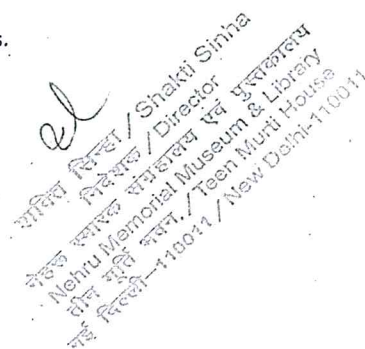 s.
शक्ति सिन्हा / Shakti Sinha
निदेशक / Director
नेहरू स्मारक संग्रहालय एवं पुस्तकालय
Nehru Memorial Museum & Library
तीन मूर्ति भवन, / Teen Murti House
नई दिल्ली–110011 / New Delhi-110011